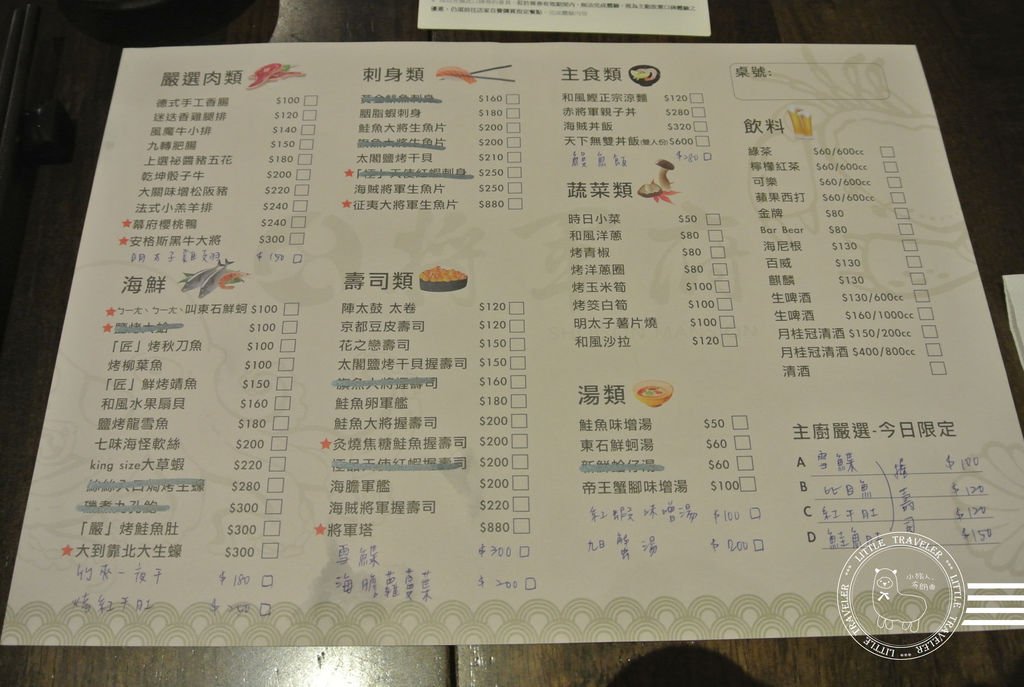 嚴選肉類
德式手工香腸 $100
迷迭香雞腿排 $120
風魔牛小排 $140
九轉肥腸 $150
上選祕醬豬五花 $180
乾坤骰子牛 $200
大關味增松阪豬 $220
法式小羔羊排 $240
★幕府櫻桃鴨 $240
★安格斯黑牛大將 $300
明太子雞翅 $150
海鮮
★ㄅㄧㄤˋㄅㄧㄤˋ叫東石鮮蚵 $100
★鹽烤大蛤 $100
「匠」烤秋刀魚 $100
烤柳葉魚 $100
「匠」鮮烤靖魚 $150
和風水果扇貝 $160
鹽烤龍雪魚 $180
七味海怪軟絲 $200
king size大草蝦 $220
$280
$300
「嚴」烤鮭魚肚 $300
★大到靠北大生蠔 $300
竹筴一夜干 $180
烤紅干肚
刺身類
$160
胭脂蝦刺身 $180
鮭魚大將生魚片 $200
旗魚大將生魚片 $200
太閤鹽烤干貝 $210
★「極」天使紅蝦刺身 $250
海賊將軍生魚片 $250
★征夷大將軍生魚片 $880
壽司類
陣太鼓 太卷 $120
京都豆皮壽司 $120
花之戀壽司 $150
太閤鹽烤干貝握壽司 $150
旗魚大將握壽司 $160
鮭魚卵軍艦 $180
鮭魚大將握壽司 $200
★炙燒焦糖鮭魚握壽司 $200
極品天使紅蝦握壽司 $200
海膽軍艦 $200
海賊將軍握壽司 $220
★將軍塔 $880
雪鰈 $300
海膽蘿蔓葉 $200
主食類
和風鰹正宗涼麵 $120
赤將軍親子丼 $280
海賊丼飯 $320
天下無雙丼飯(雙人份) $600
鰻魚飯 $280
蔬菜類
時日小菜 $50
和風洋蔥 $80
烤青椒 $80
烤洋蔥圈 $80
烤玉米筍 $100
烤筊白筍 $100
明太子薯片燒 $100
和風沙拉 $120
湯類
鮭魚味增湯 $50
東石鮮蚵湯 $60
新鮮蛤仔湯 $60
帝王蟹腳味增湯 $100
紅蝦味噌湯 $100
$200
桌號:
飲料
綠茶 $60/600cc
檸檬紅茶 $60/600cc
可樂 $60/600cc
蘋果西打 $60/600cc
金牌 $80
Bar Bear $80
海尼根 $130
百威 $130
麒麟 $130
生啤酒 $130/600cc
生啤酒 $160/1000cc
月桂冠清酒 $150/200cc
月桂冠清酒 $400/800cc
清酒
主廚嚴選-今日限定
A 雪鰈 $100
B 比目魚 $120
C 紅干肚 $120
D $150
握壽司
LITTLE TRAVELER
LITTLE TRAVELER
LITTLE TRAVELER
小旅人。